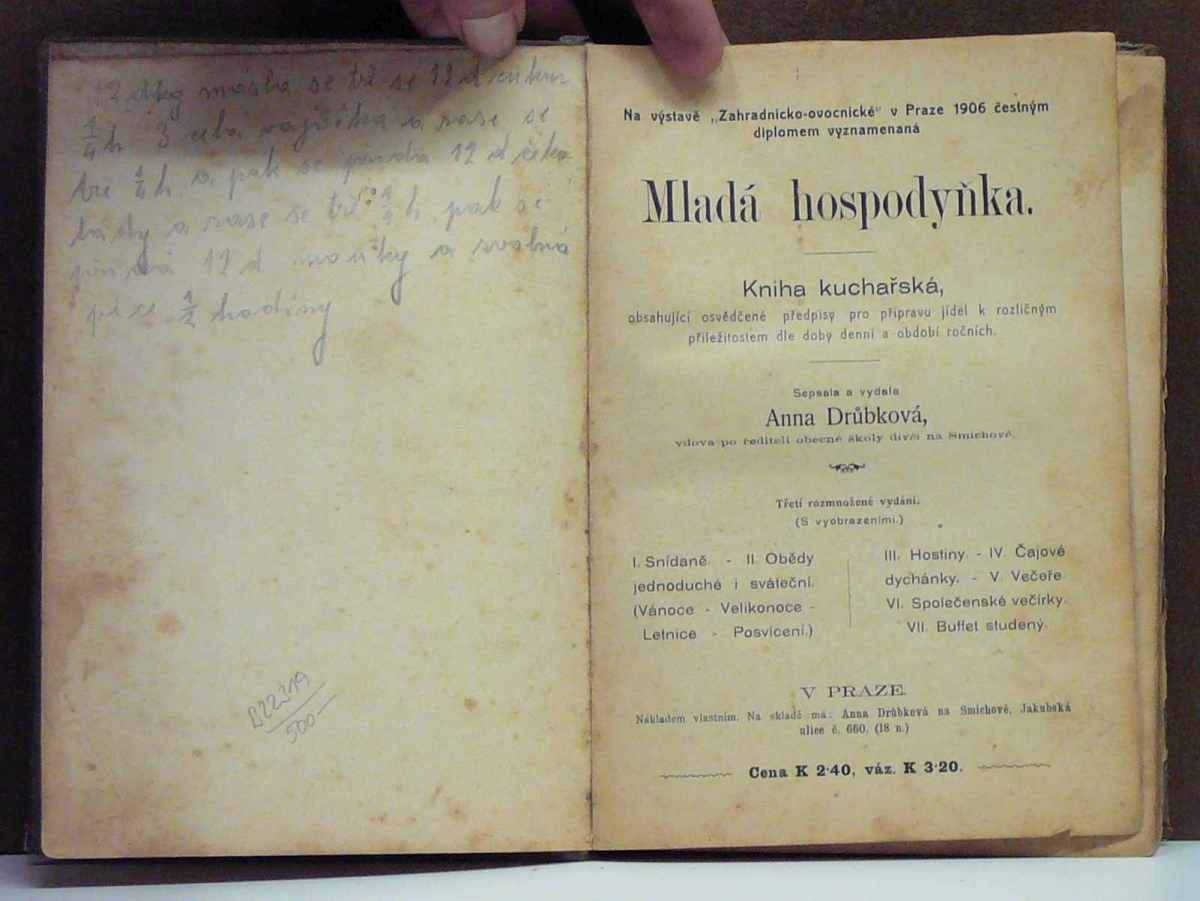 12 dkg másla se tře se 12 d cukru
1/4 h 3 celá vajíčka a zase se
tře 1/4 h a pak se 12 d čoko
lády a zase se tře 1/4 h pak se
12 d mouky a zvolna
peče 1/2 hodiny
500-
Na výstavě „Zahradnicko-ovocnické" v Praze 1906 čestným
diplomem vyznamenaná
Mladá hospodyňka.
Kniha kuchařská,
obsahující osvědčené předpisy pro přípravu jídel k rozličným
příležitostem dle doby denní a období ročních.
Sepsala a vydala
Anna Drůbková,
vdova po řediteli obecné školy dívčí na Smíchově.
Třetí rozmnožené vydání.
(S vyobrazeními.)
I. Snídaně. - II. Obědy
jednoduché i sváteční.
(Vánoce - Velikonoce -
Letnice - Posvícení.)
III. Hostiny. - IV. Čajové
dychánky. - V. Večeře.
VI. Společenské večírky.
VII. Buffet studený.
V PRAZE.
Nákladem vlastním. Na skladě má: Anna Drůbková na Smíchově, Jakubská
ulice č. 660. (18 n.)
Cena K 2·40, váz. K 3·20.